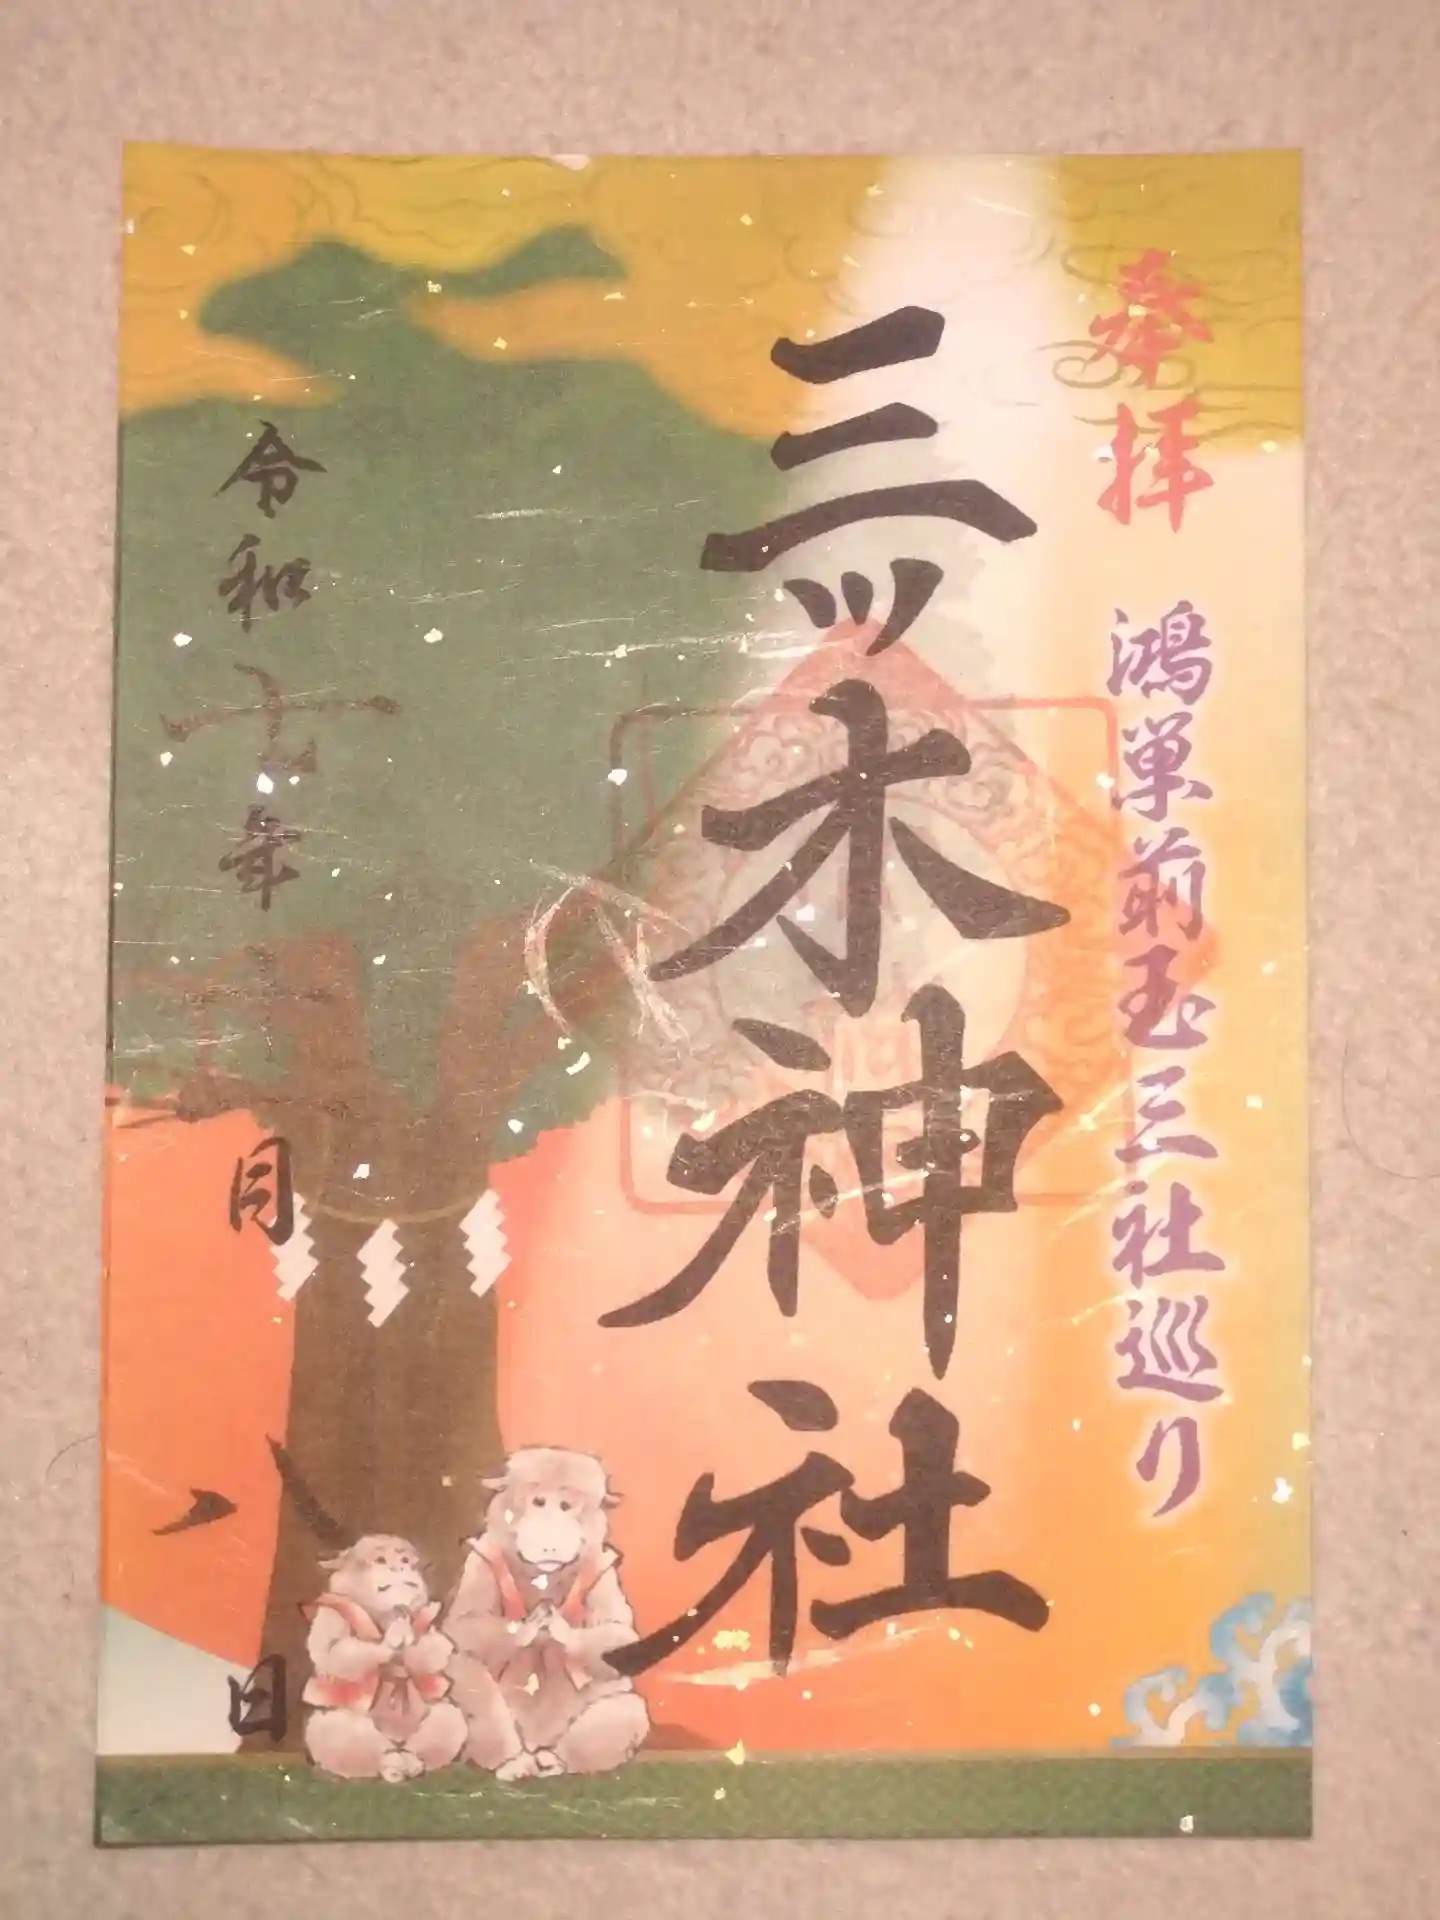 奉拝
鴻巣前玉三社巡り
三ツ木神社
令和七年 月八日